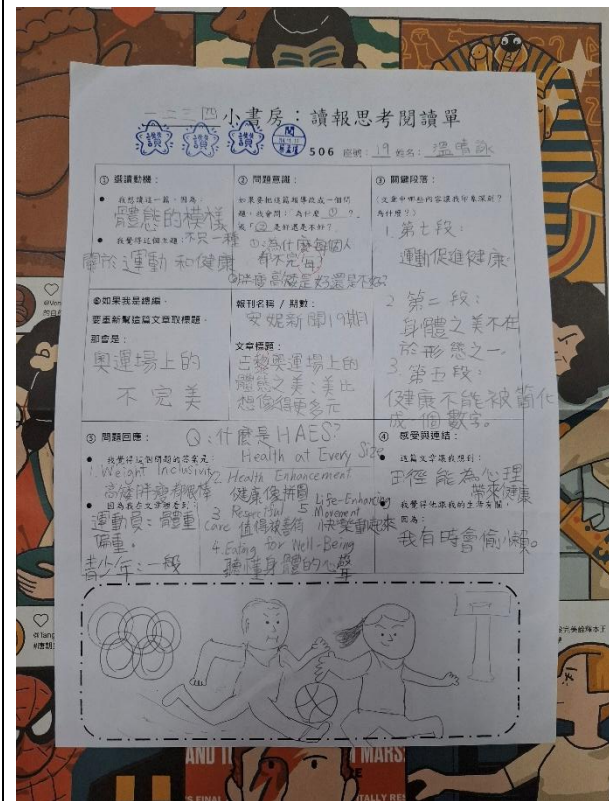 一二三四小書房：讀報思考閱讀單
讀 讀 讀 閱
506 座號：19 姓名：溫晴詠
① 選讀動機：
● 我想讀這一篇，因為：
體態的模樣
不只一種
● 我覺得這個主題：
關於運動和健康
② 問題意識：
如果要把這篇報導改成一個問
題，我會問：「為什麼 ① ？」
或「② 是好還是不好？」
①：為什麼每個人
都不完
胖瘦高矮是好還是不好？
③ 關鍵段落：
(文章中哪些內容讓我印象深刻？
為什麼？)
1. 第七段：
運動促進健康
2 第二段：
身體之美不在
於形態之一。
3. 第五段：
健康不能被簡化
成一個數字。
⑥如果我是總編，
要重新幫這篇文章取標題，
那會是：
奧運場上的
不完美
報刊名稱 / 期數：
安妮新聞19期
文章標題：
巴黎奧運場上的
體態之美：美比
想像得更多元
⑤ 問題回應：
Q：什麼是HAES？
Health at Every Size
● 我覺得這個問題的答案是：
1. Weight Inclusivity
高矮胖瘦有眼棒
2. Health Enhancement
健康像拼圖
3. Respectful
Care 值得被善待
4. Eating for Well-Being
聽懂身體的心聲
5 Life-Enhancing
Movement
快樂動起來
● 因為我在文章裡看到：
運動員：體重
偏重。
青少年：一般
④ 感受與連結：
● 這篇文章讓我想到：
田徑能為心理
帶來健康
● 我覺得他跟我的生活有關，
因為：
我有時會偷懶。
AND
MARS